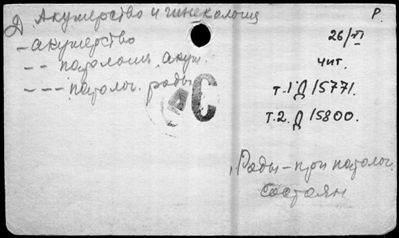 Д Акушерство и гинекология
- акушерство
-- патология акуш.
--- патолог. роды
С
Р.
26/VI
чит.
т.1 Д/5771.
т.2. Д/5800.
"Роды – при патолог.
состоян